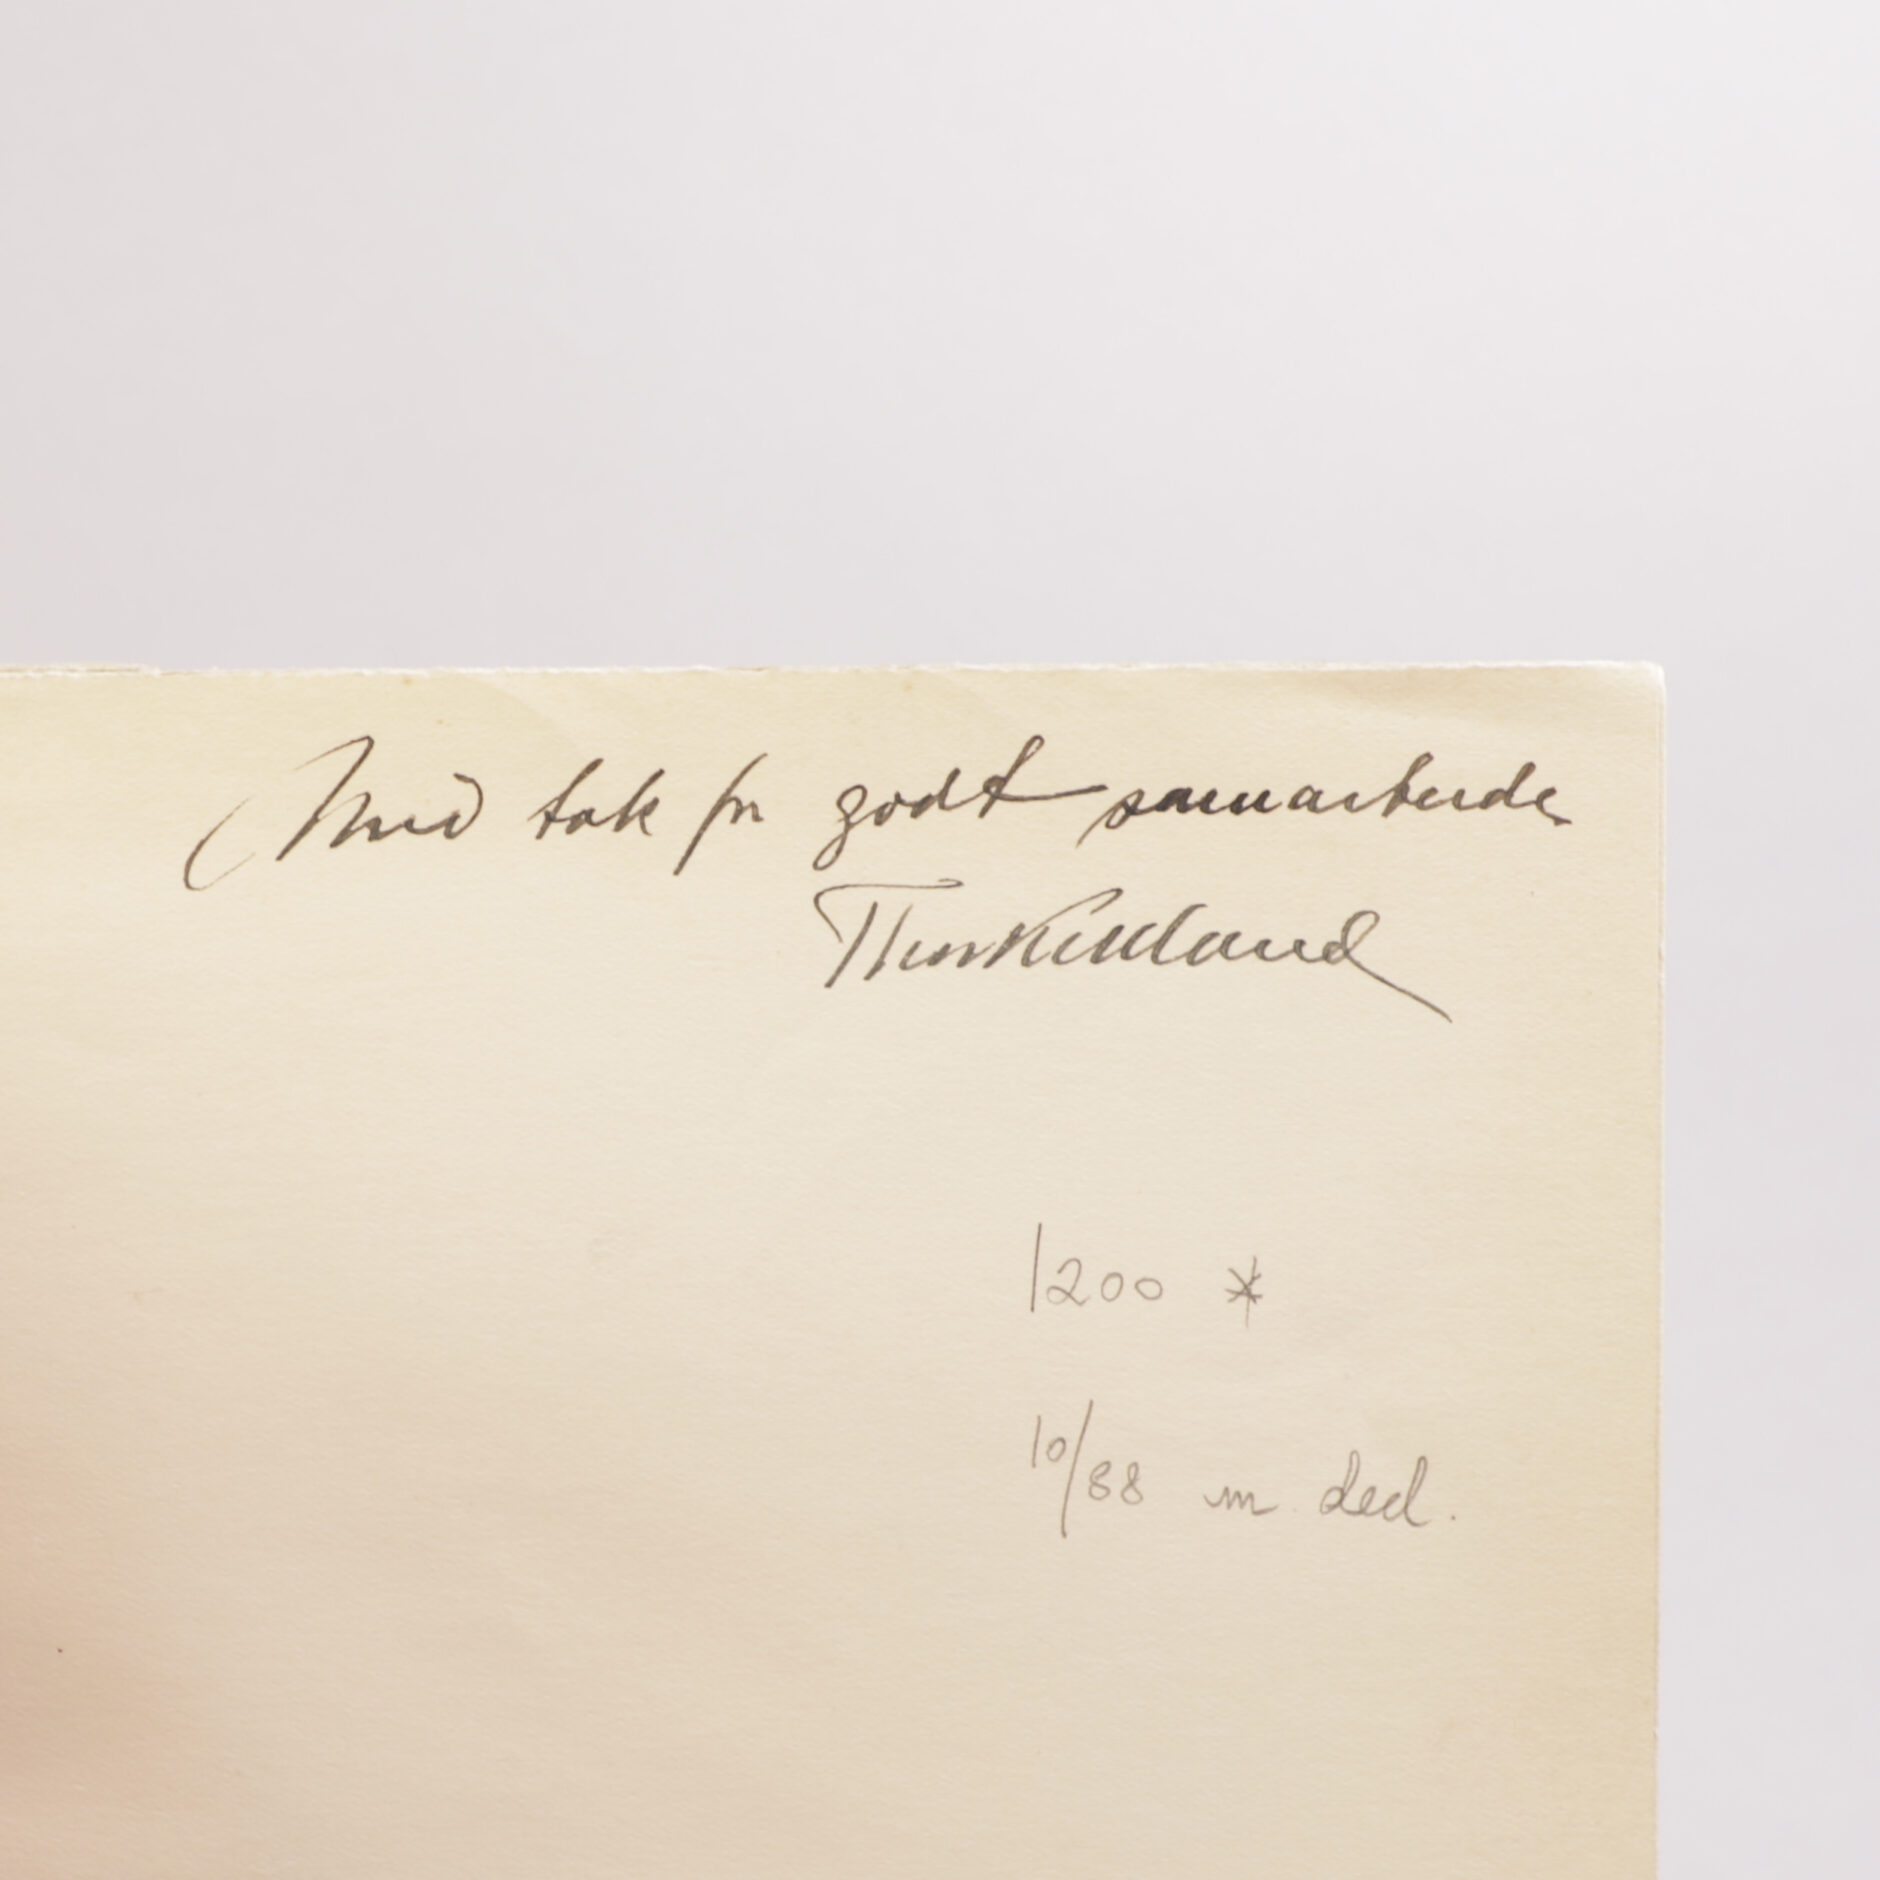 Med tak for godt samarbeide
Thor Kielland
1200 *
10/88 m. ded.